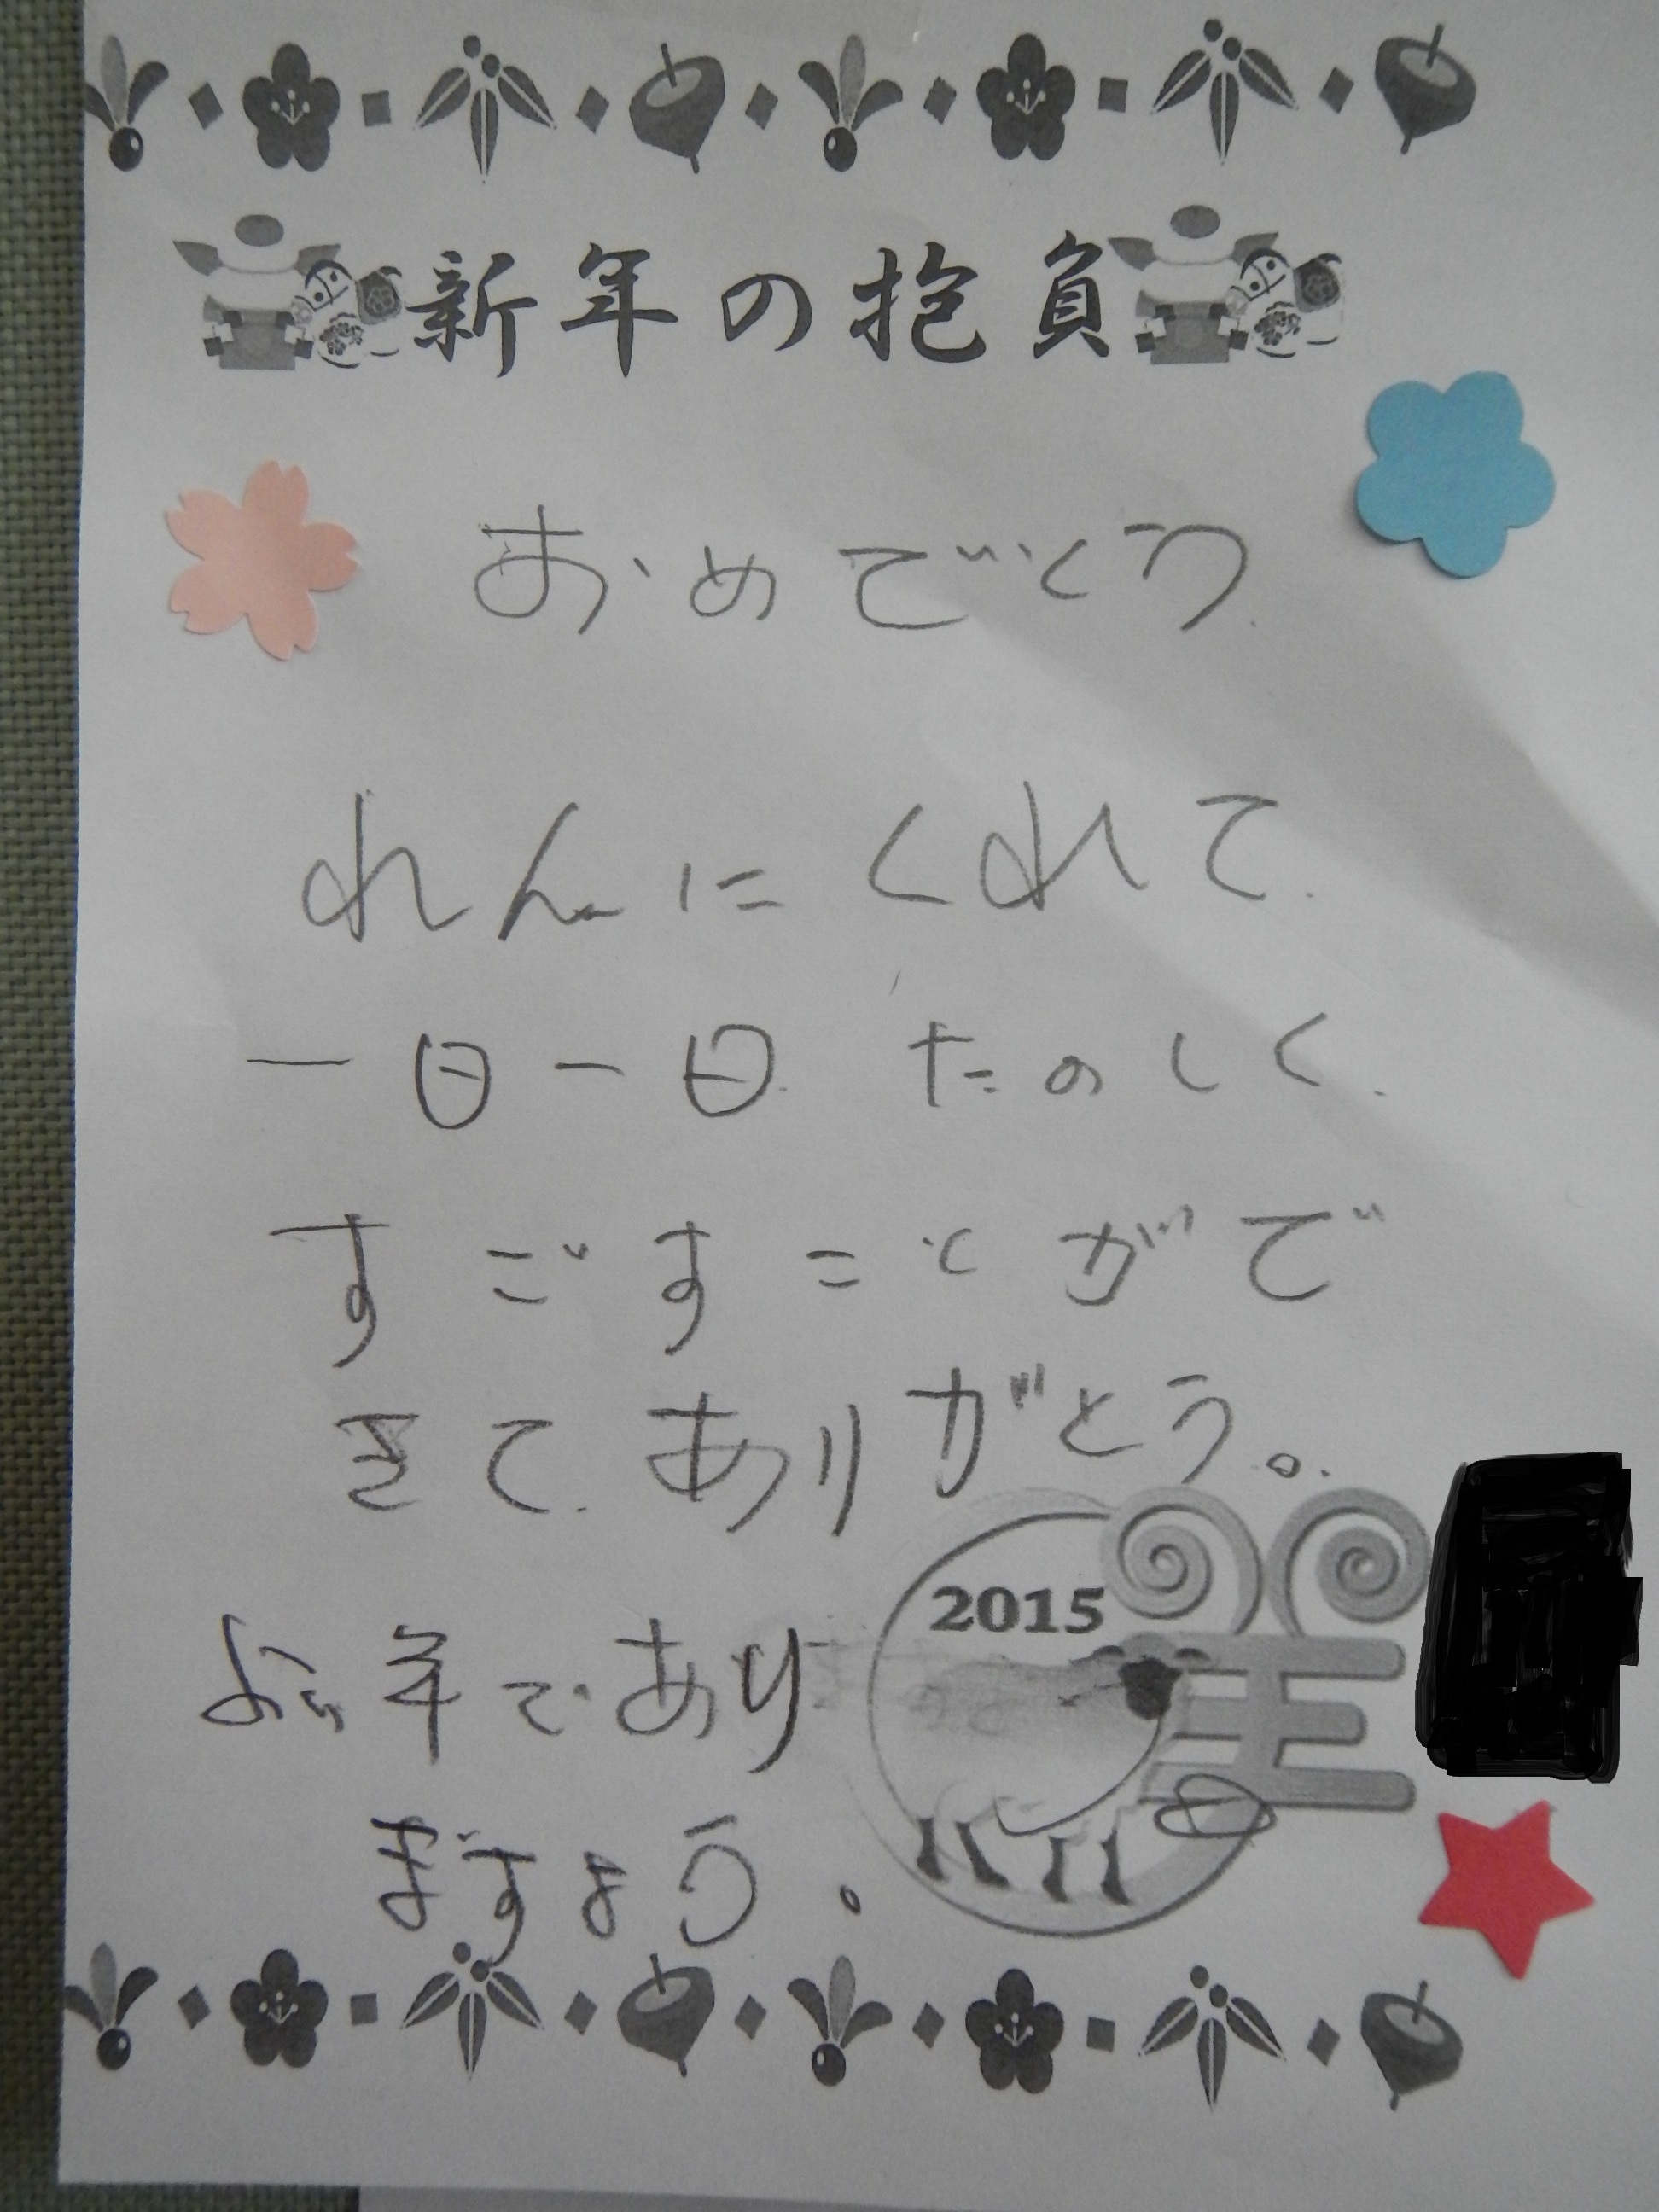 新年の抱負
おめでとう
れんにくれて
一日一日 たのしく
すごすことがで
きて ありがとう。
2015
よい年であり
ますよう。